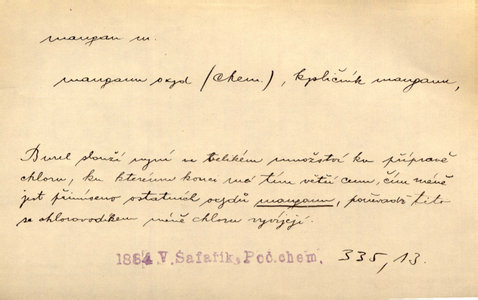 mangan m.
manganu oxyd (Chem.), kysličník manganu,
Burel slouží nyní u velikém množství ku přípravě
chloru, ku kterému konci má tím větší cenu, čím méně
jest přimíseno ostatních oxydů manganu, poněvadž tito
se chlorovodíkem méně chloru vyvíjejí.
1884 V. Šafařík, Poč. chem. 335, 13.